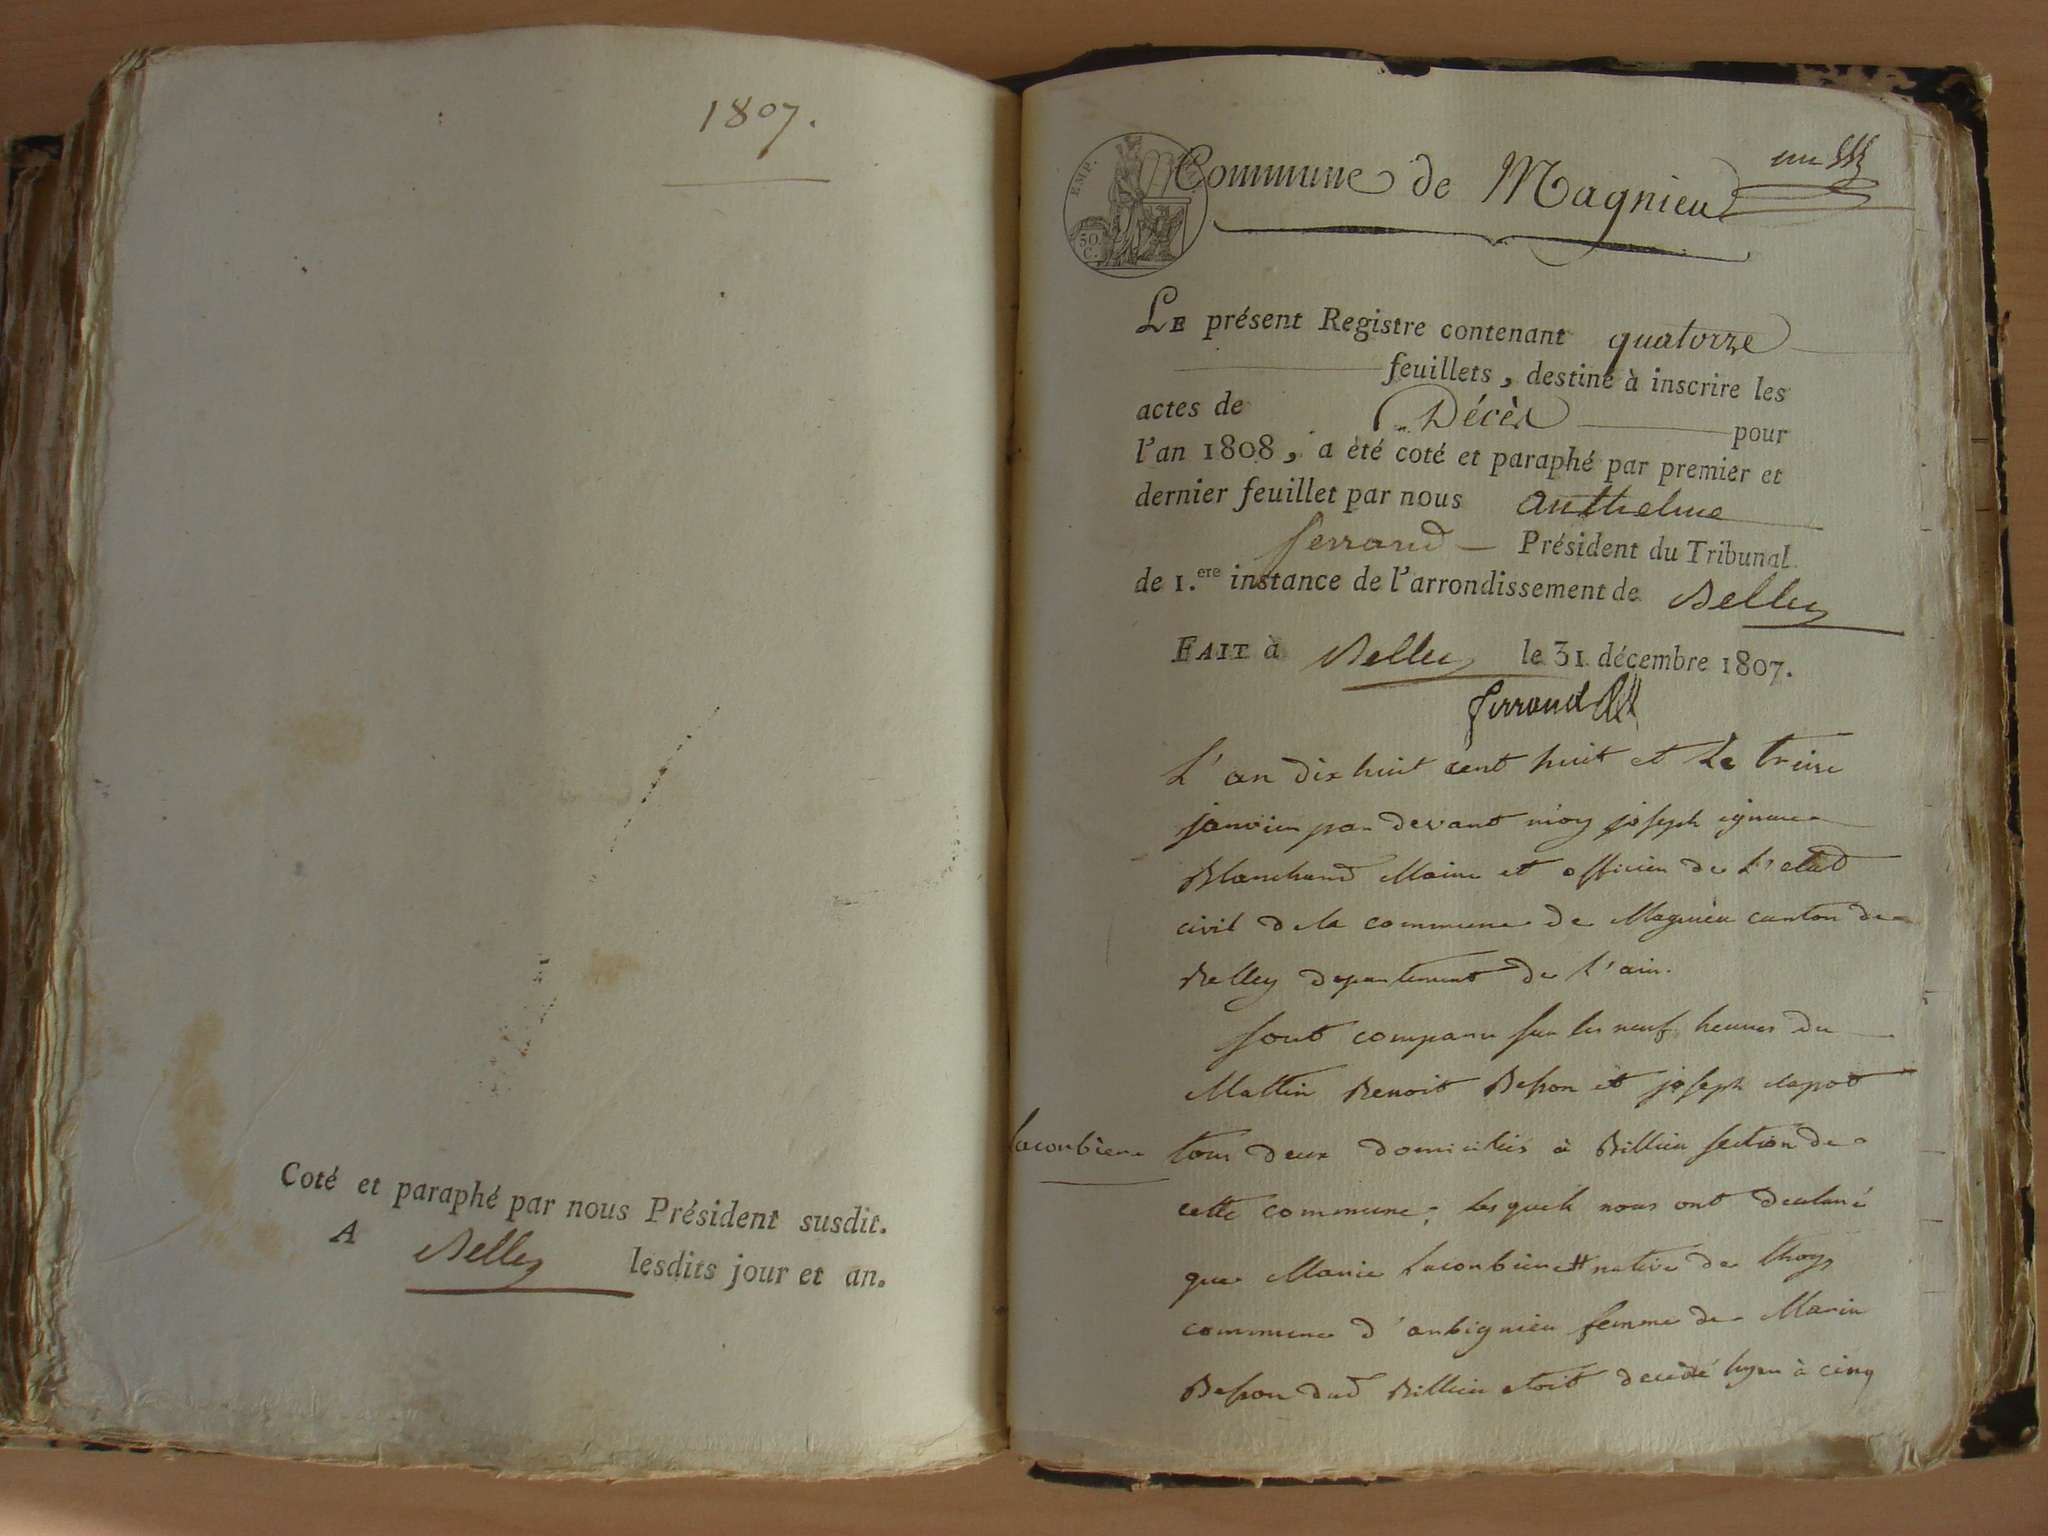 1807.
Coté et paraphé par nous Président susdit.
A Belley lesdits jour et an.
EMP.
50.
C.
Commune de Magnieu
un
LE présent Registre contenant quatorze
feuillets, destiné à inscrire les
actes de Décès pour
l'an 1808, a été coté et paraphé par premier et
dernier feuillet par nous Anthelme
ferrand Président du Tribunal
de 1.ere instance de l'arrondissement de Belley
FAIT à Belley le 31 décembre 1807.
ferrand
L'an dix huit cent huit et le treise
janvier par devant moy joseph ignace
Blanchard Maire et officier de l'etat
civil de la commune de Magnieu canton de
Belley departement de l'ain.
sont comparu sur les neuf heures du
Mattin Benoit Besson et joseph clapot
tous deux domiciliés à Billieu section de
cette commune; lesquels nous ont declaré
lacombiere
que Marie lacombiere # native de thoys
commune d'arbignieu femme de Marin
Besson dud Billieu etoit decedé hyer à cinq